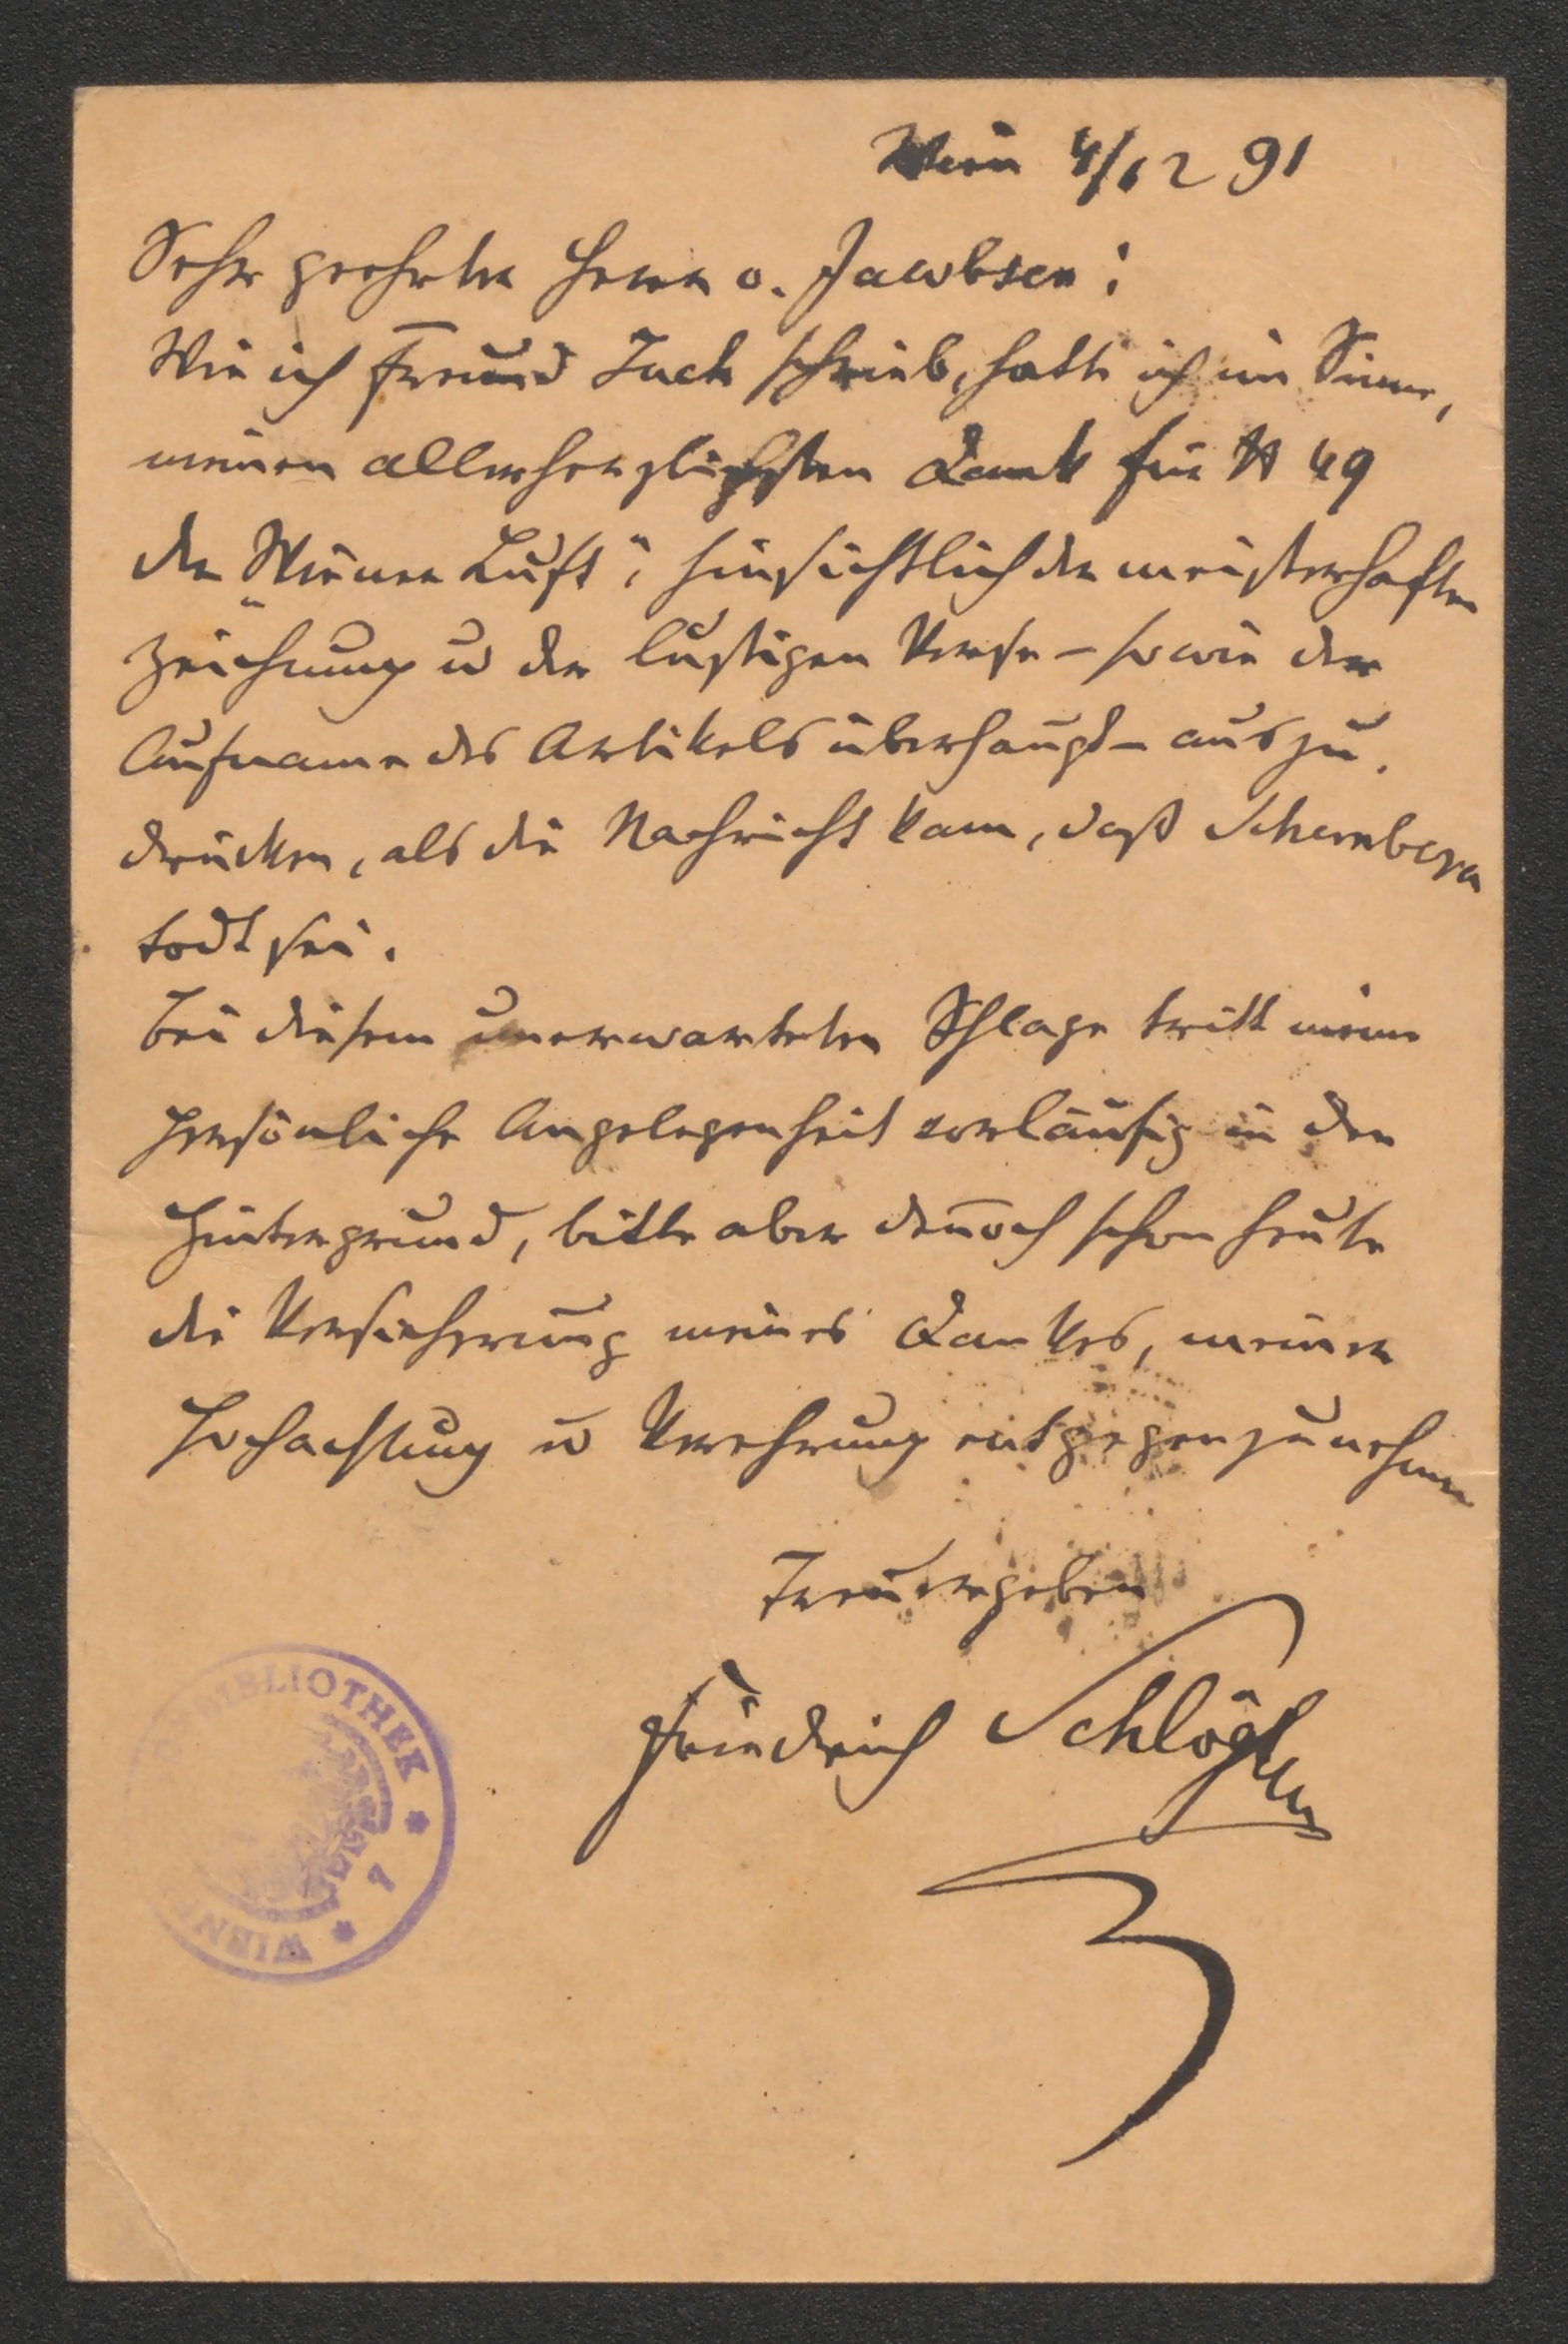 Wien 4/12 91
Sehr geehrter Herr v. Jacobsen!
Wie ich Freund Juch schrieb, hatte ich im Sinne,
meinen allerherzlichsten Dank für № 49
der „Wiener Luft“, hinsichtlich der meisterhaften
Zeichnung u der lustigen Verse – sowie der
Aufname des Artikels überhaupt – auszu-
drücken, als die Nachricht kam, daß Schernberg
todt sei.
Bei diesem unerwarteten Schlage tritt meine
persönliche Angelegenheit vorläufig in den
Hintergrund, bitte aber den̄och schon heute
die Versicherung meines Dankes, meiner
Hochachtung u Verehrung entgegenzunehmen
Treuergeben
Friedrich Schlögl
BIBLIOTHEK * 7 * WIEN